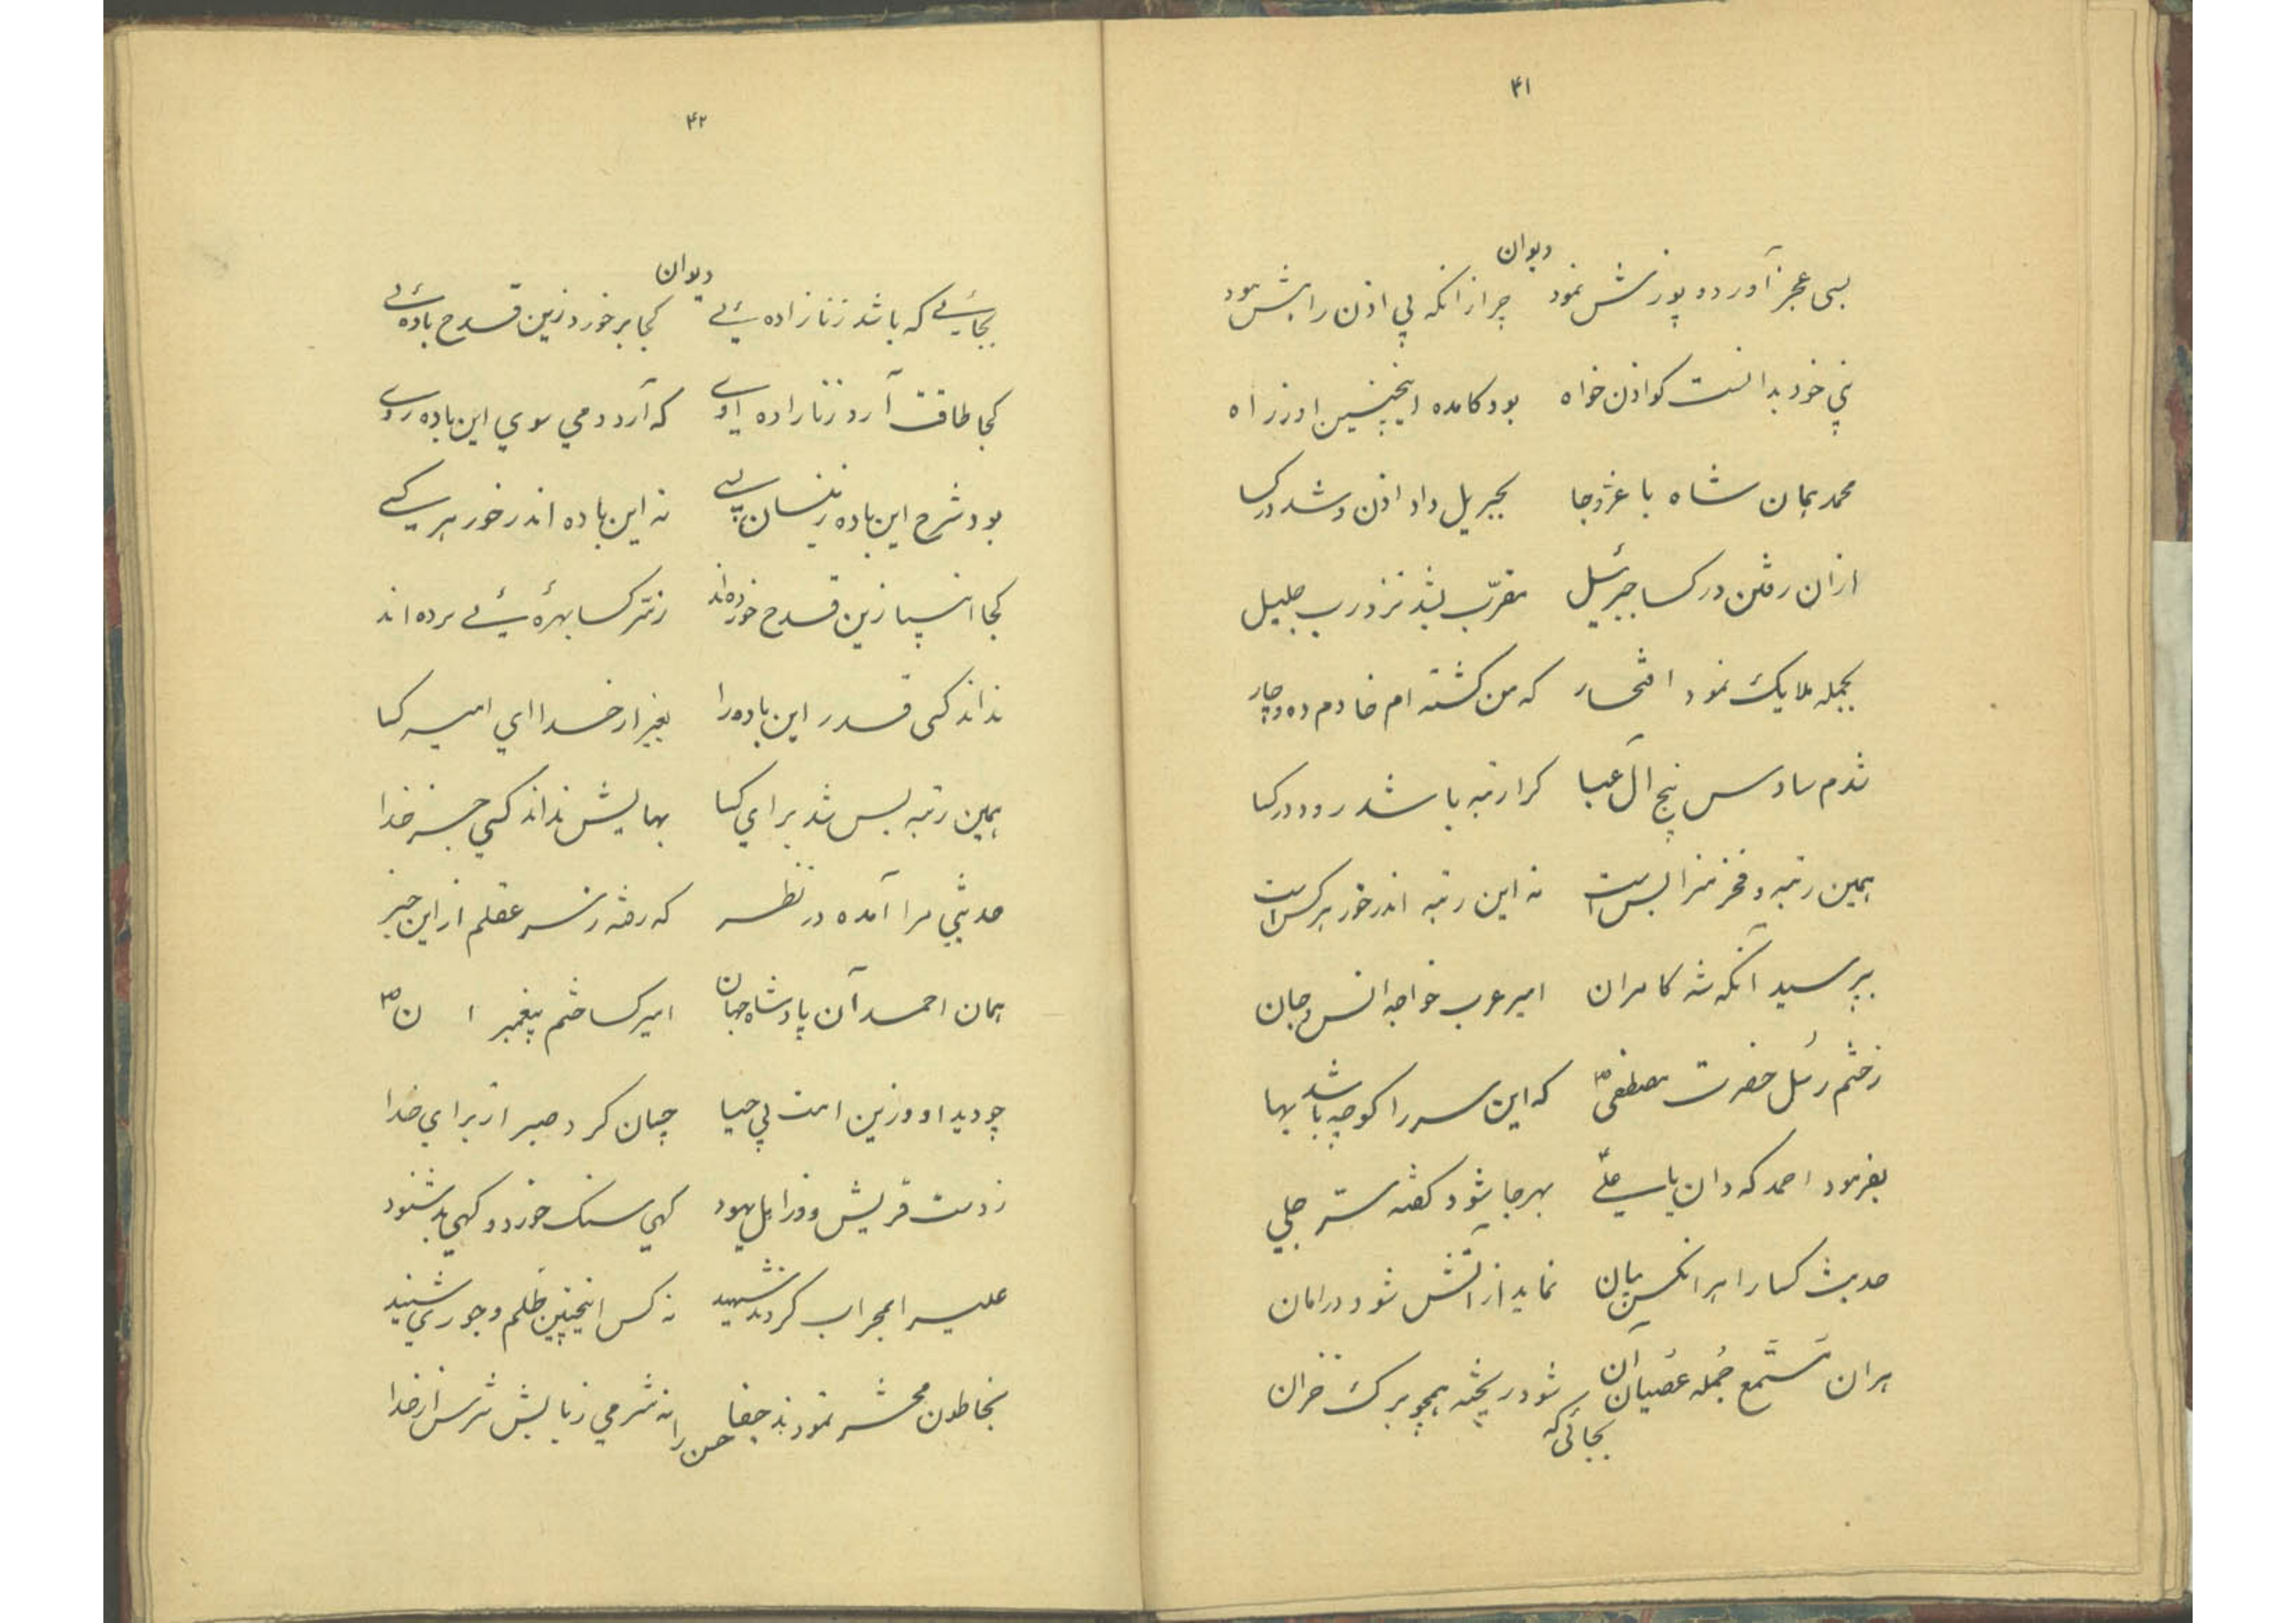 ۴۱
دیوان
بسی عجز آورد و پوزش نمود چرا زانکه بی اذن را بش بود
نبی خود بدانست کو اذن خواه بود کامده اینچنین او ز راه
محمد همان شاه با عز و جا بجبریل داد اذن و شد در کسا
از ان رفتن در کسا جبرئیل مقرّب بشد نزد رب جلیل
بجمله ملایک نمود افتخار که من کشته ام خادم ده و چار
شدم سادس پنج آل عبا کرا رتبه باشد رود در کسا
همین رتبه و فخر مرا بس است نه این رتبه اندر خور هر کس است
بپرسید آنکه شه کامران امیر عرب خواجه انس و جان
ز ختم رسل حضرت مصطفی ص که این سر را کو چه باشد بها
بفرمود احمد که دان یا علی بهر جا شود کفته سرّ جلی
حدیث کسا را هر انکس بیان نماید از آتش شود در امان
هران مستمع جمله عصیان آن شود ریخته همچو برک خزان
بجائی که
۴۲
دیوان
بجائی که باشد زنازاده ئی کجا بر خورد زین قدح باده ئی
کجا طاقت آرد زنازاده اوی که آرد دمی سوی این باده روی
بود شرح این باده زینسان بسی نه این باده اندر خور هر کسی
کجا انبیا زین قدح خورده اند ز سرّ کسا بهره ئی برده اند
نداند کسی قدر این باده را بغیر از خدا ای امیر کسا
همین رتبه بس شد برای کسا بهایش نداند کسی جز خدا
حدیثی مرا آمده در نظر که رفته ز سر عقلم از این خبر
همان احمد آن پادشاه جهان امیر کسا ختم پیغمبر ا ن ص
چو دید او وزین امت بی حیا چسان کرد صبر از برای خدا
ز دست قریش و وز اهل یهود کهی سنک خورد و کهی بد شنود
علی را بمحراب کردند شهید نه کس اینچنین ظلم و جوری شنید
بخاطون محشر نمودند جفا نه شرمی ز بابش نه ترس از خدا
حسن را